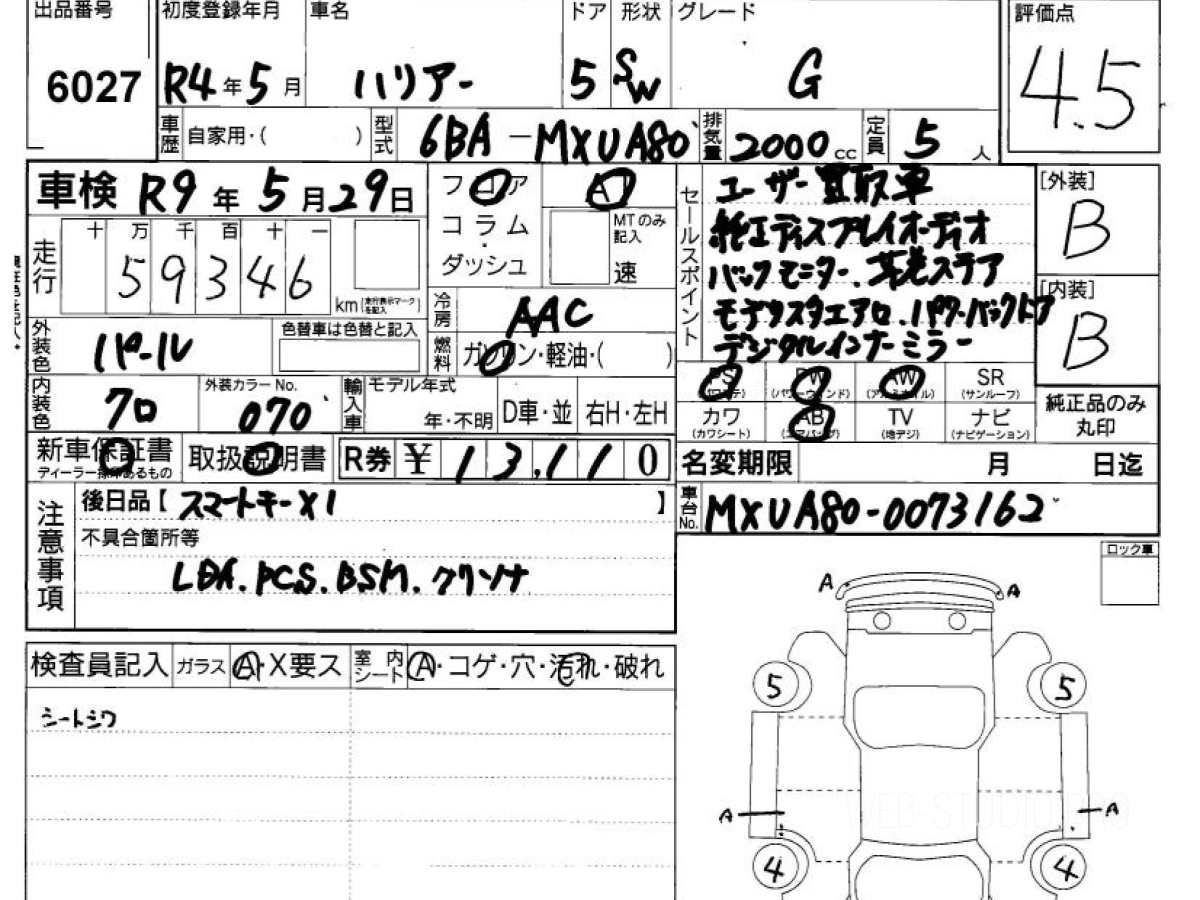 出品番号 初度登録年月 車名 ドア 形状 グレード 評価点
6027 R4年5月 ハリアー 5 SW G 4.5
車歴 自家用・( ) 型式 6BA-MXUA80 排気量 2000cc 定員 5人
車検 R9年5月29日 フロア AT セールスポイント ユーザー買取車 [外装]
コラム MTのみ記入 純正ディスプレイオーディオ B
走行 十万千百十一 ・
59346 km (走行表示マークを記入) ダッシュ 速 バックモニター.革巻ステア [内装]
冷房 AAC モデリスタエアロ.パワーバックドア B
外装色 パール 色替車は色替と記入 燃料 ガソリン・軽油・( ) デジタルインナーミラー
内装色 クロ 外装カラーNo. 070 輸入車 モデル年式 年・不明 D車・並 右H・左H
PS (パワステ) PW (パワーウィンド) AW (アルミホイル) SR (サンルーフ) 純正品のみ丸印
カワ (カワシート) AB (エアバッグ) TV (地デジ) ナビ (ナビゲーション)
新車保証書 ディーラー捺印あるもの 取扱説明書 R券 ¥ 13,110 名変期限 月 日迄
注意事項 後日品【スマートキーX1 】 車台No. MXUA80-0073162
不具合箇所等 ロック車
LDA.PCS.BSM.クリソナ
A A
検査員記入 ガラス A・X要ス 室内シート A・コゲ・穴・汚れ・破れ
5 5
シートシワ
A A
WEB-STUDIO
4 4